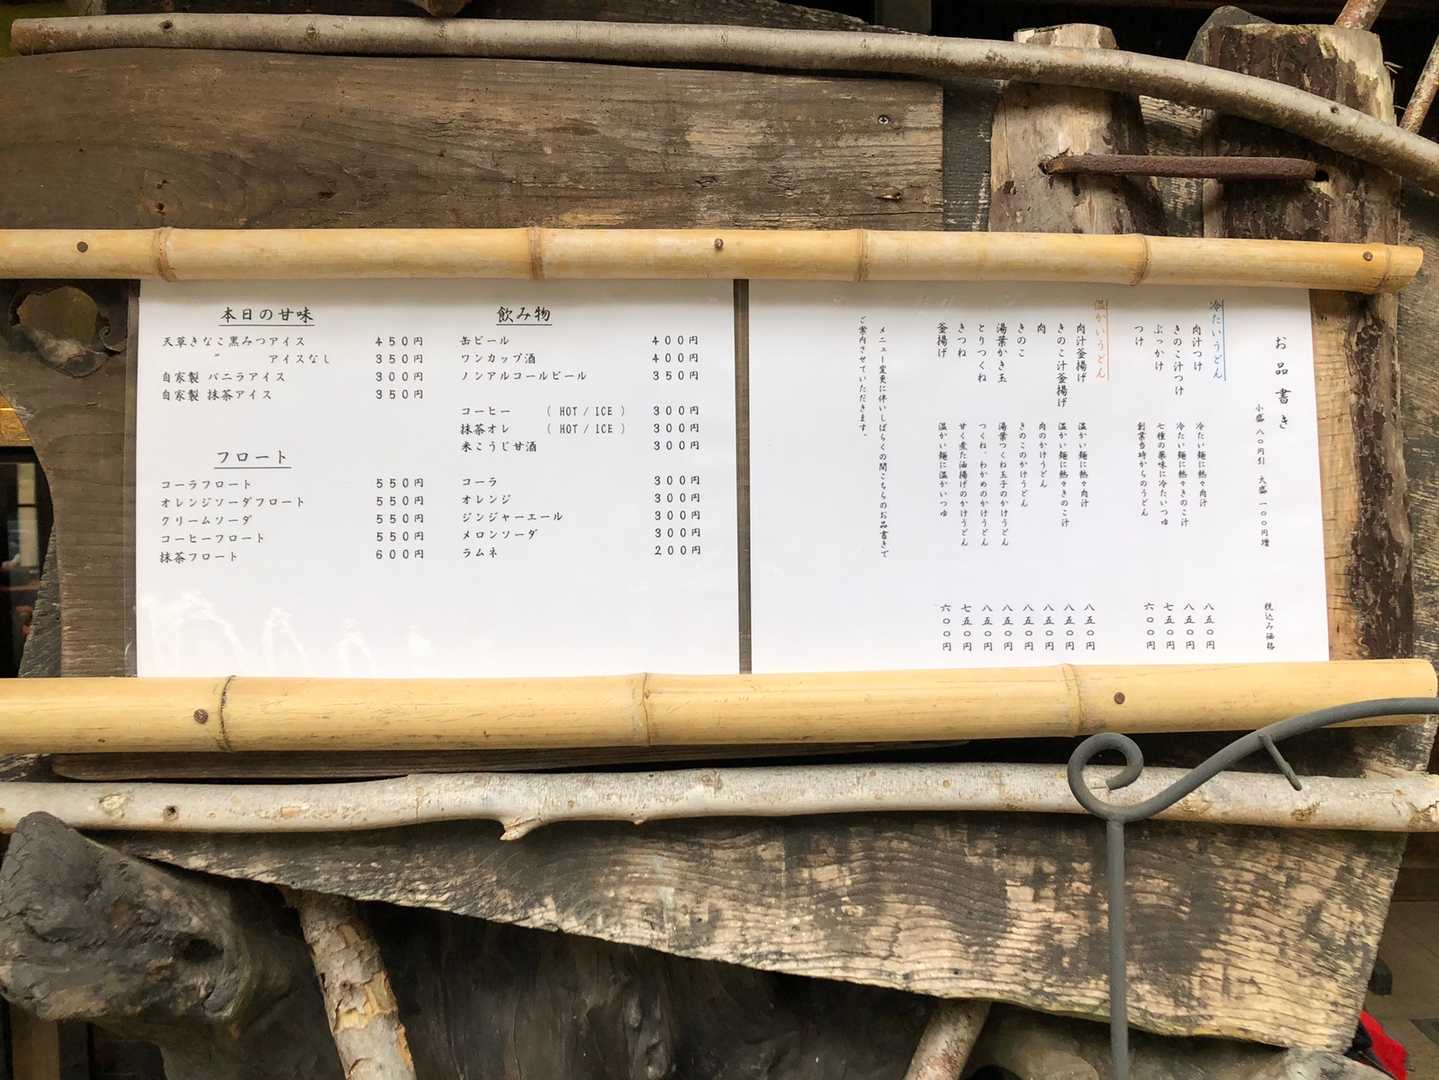 本日の甘味
天草きなこ黒みつアイス 450円
〃 アイスなし 350円
自家製 バニラアイス 300円
自家製 抹茶アイス 350円
フロート
コーラフロート 550円
オレンジソーダフロート 550円
クリームソーダ 550円
コーヒーフロート 550円
抹茶フロート 600円
飲み物
缶ビール 400円
ワンカップ酒 400円
ノンアルコールビール 350円
コーヒー ( HOT / ICE ) 300円
抹茶オレ ( HOT / ICE ) 300円
米こうじ甘酒 300円
コーラ 300円
オレンジ 300円
ジンジャーエール 300円
メロンソーダ 300円
ラムネ 200円
お品書き
小盛 八〇円引 大盛 一〇〇円増 税込み価格
冷たいうどん
肉汁つけ 冷たい麺に熱々肉汁 八五〇円
きのこ汁つけ 冷たい麺に熱々きのこ汁 八五〇円
ぶっかけ 七種の薬味に冷たいつゆ 七五〇円
つけ 創業当時からのうどん 六〇〇円
温かいうどん
肉汁釜揚げ 温かい麺に熱々肉汁 八五〇円
きのこ汁釜揚げ 温かい麺に熱々きのこ汁 八五〇円
肉 肉のかけうどん 八五〇円
きのこ きのこのかけうどん 八五〇円
湯葉かき玉 湯葉つくね玉子のかけうどん 八五〇円
とりつくね つくね、わかめのかけうどん 八五〇円
きつね 甘く煮た油揚げのかけうどん 七五〇円
釜揚げ 温かい麺に温かいつゆ 六〇〇円
メニュー変更に伴いしばらくの間こちらのお品書きで
ご案内させていただきます。